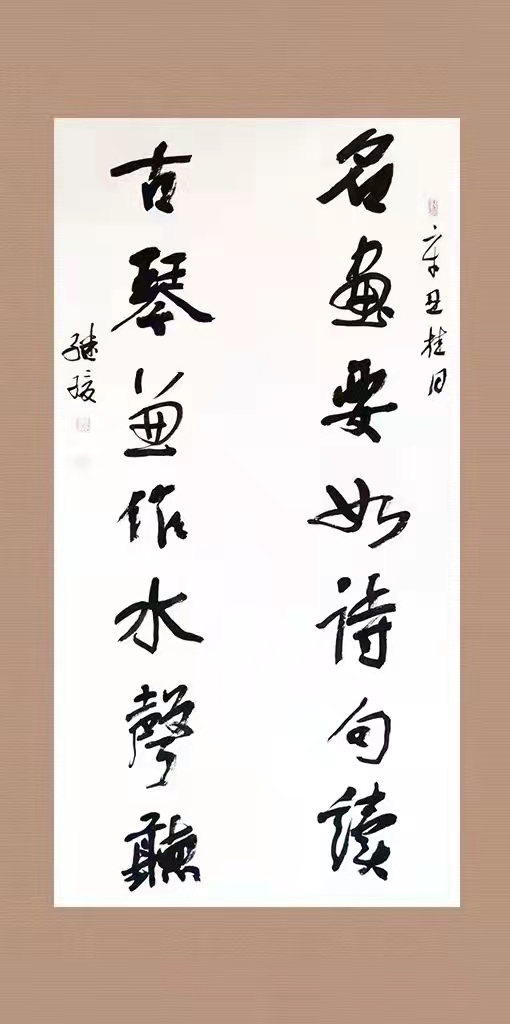 辛丑桂月
名畫要如詩句讀
古琴兼作水聲聽